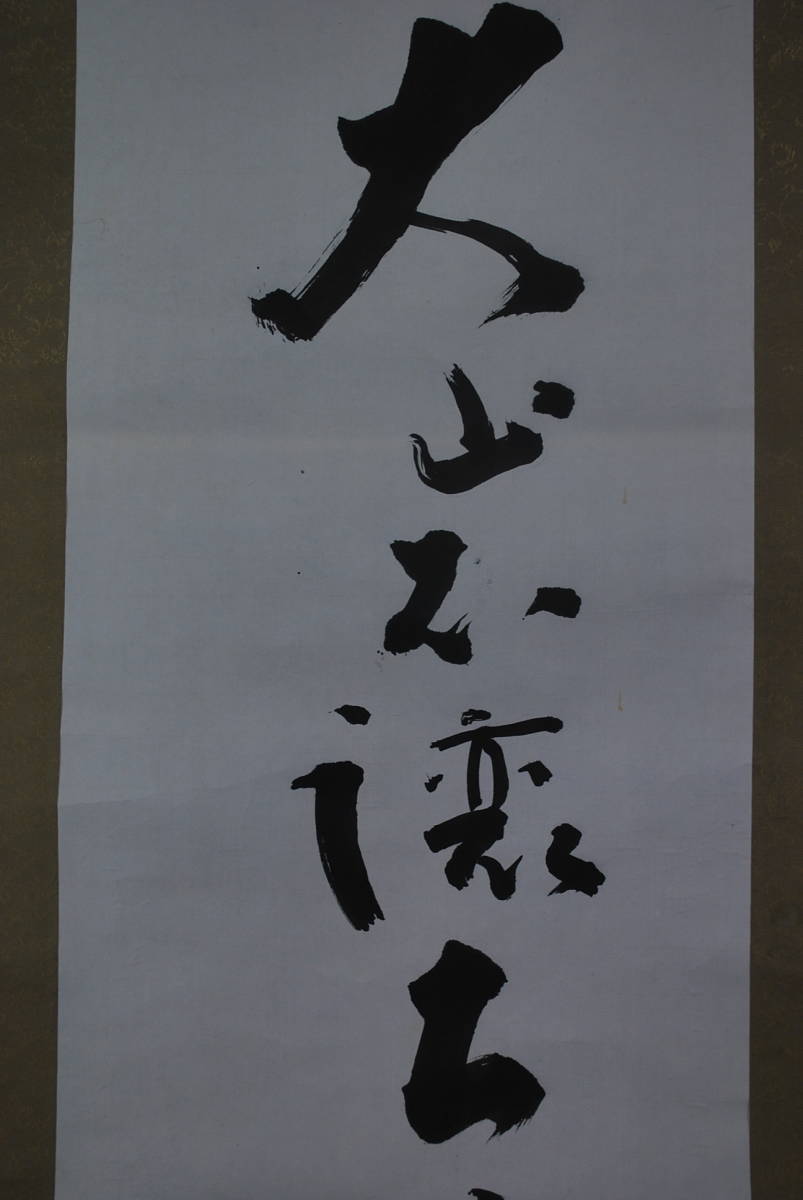 大山不讓土